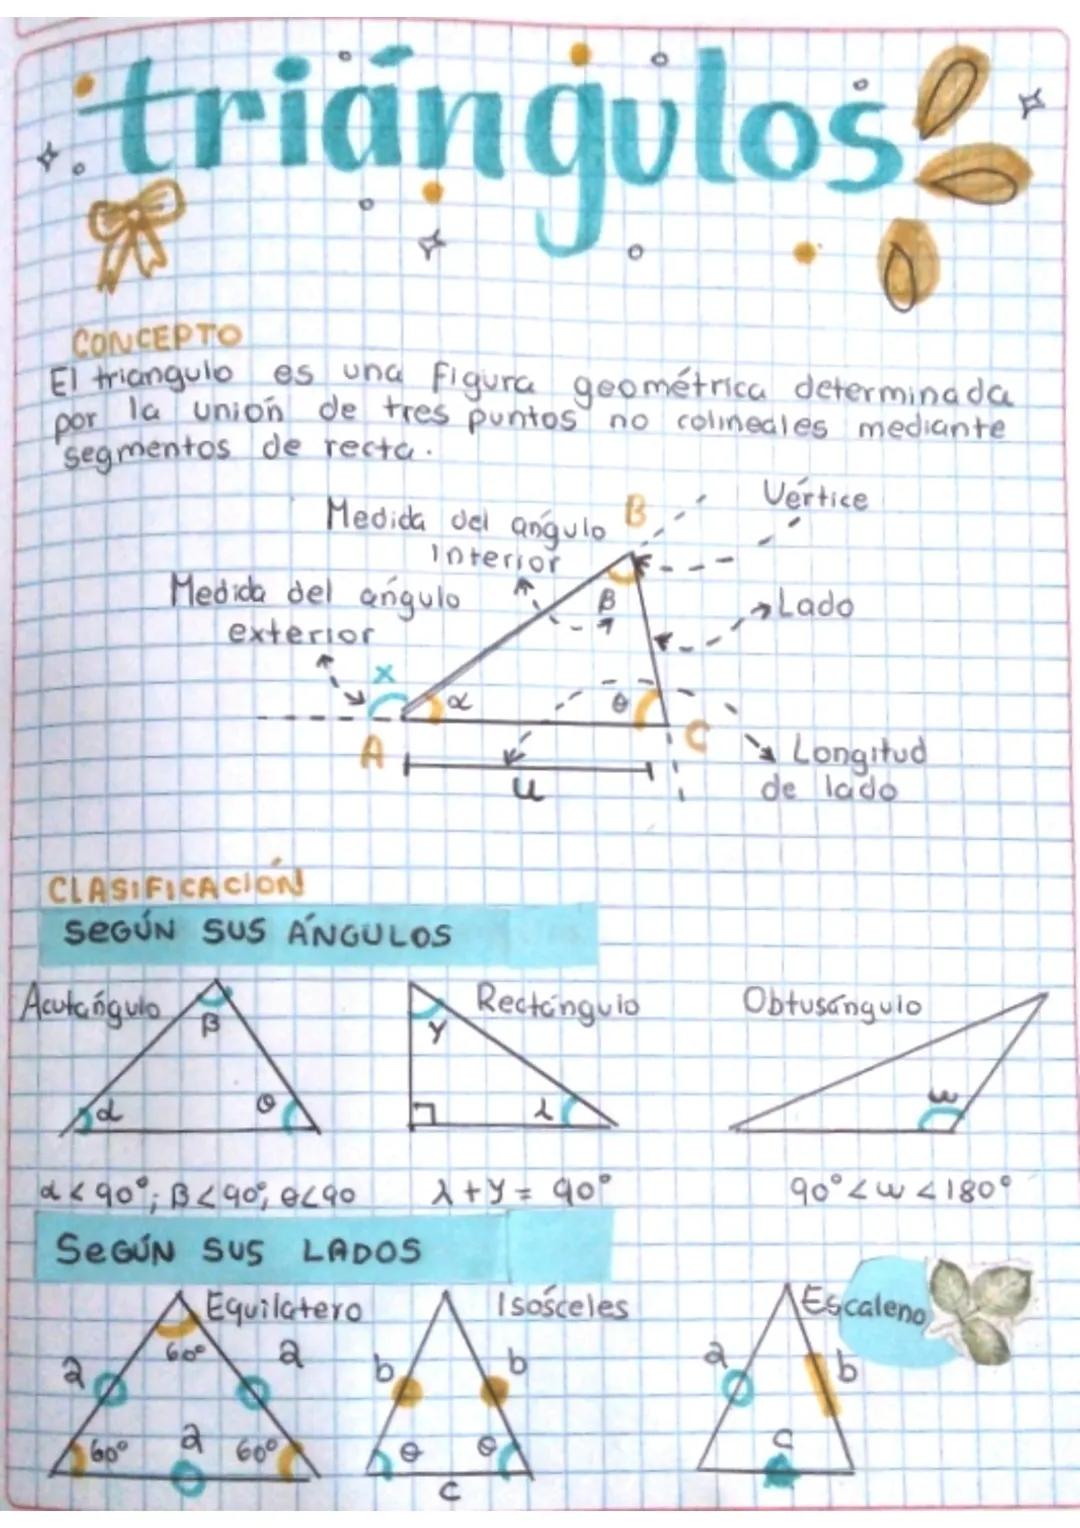 triángulos
CONCEPTO
El triangulo es una figura geométrica determinada
por la unión de tres puntos no colineales mediante
segmentos de recta.
Vértice
B
Medida del angúlo
Interior
Medida del angúlo
exterior
β
Lado
x
α
θ
A
C
Longitud
de lado
u
CLASIFICACIÓN
SEGÚN SUS ÁNGULOS
Acutángulo
Rectángulo
Obtusángulo
β
γ
α
θ
λ
w
α < 90°; β < 90°, θ < 90
λ + γ = 90°
90° < w < 180°
SEGÚN SUS LADOS
Equilatero
Isósceles
Escaleno
60°
a
a
b
b
a
b
60°
a
60°
θ
θ
c
c